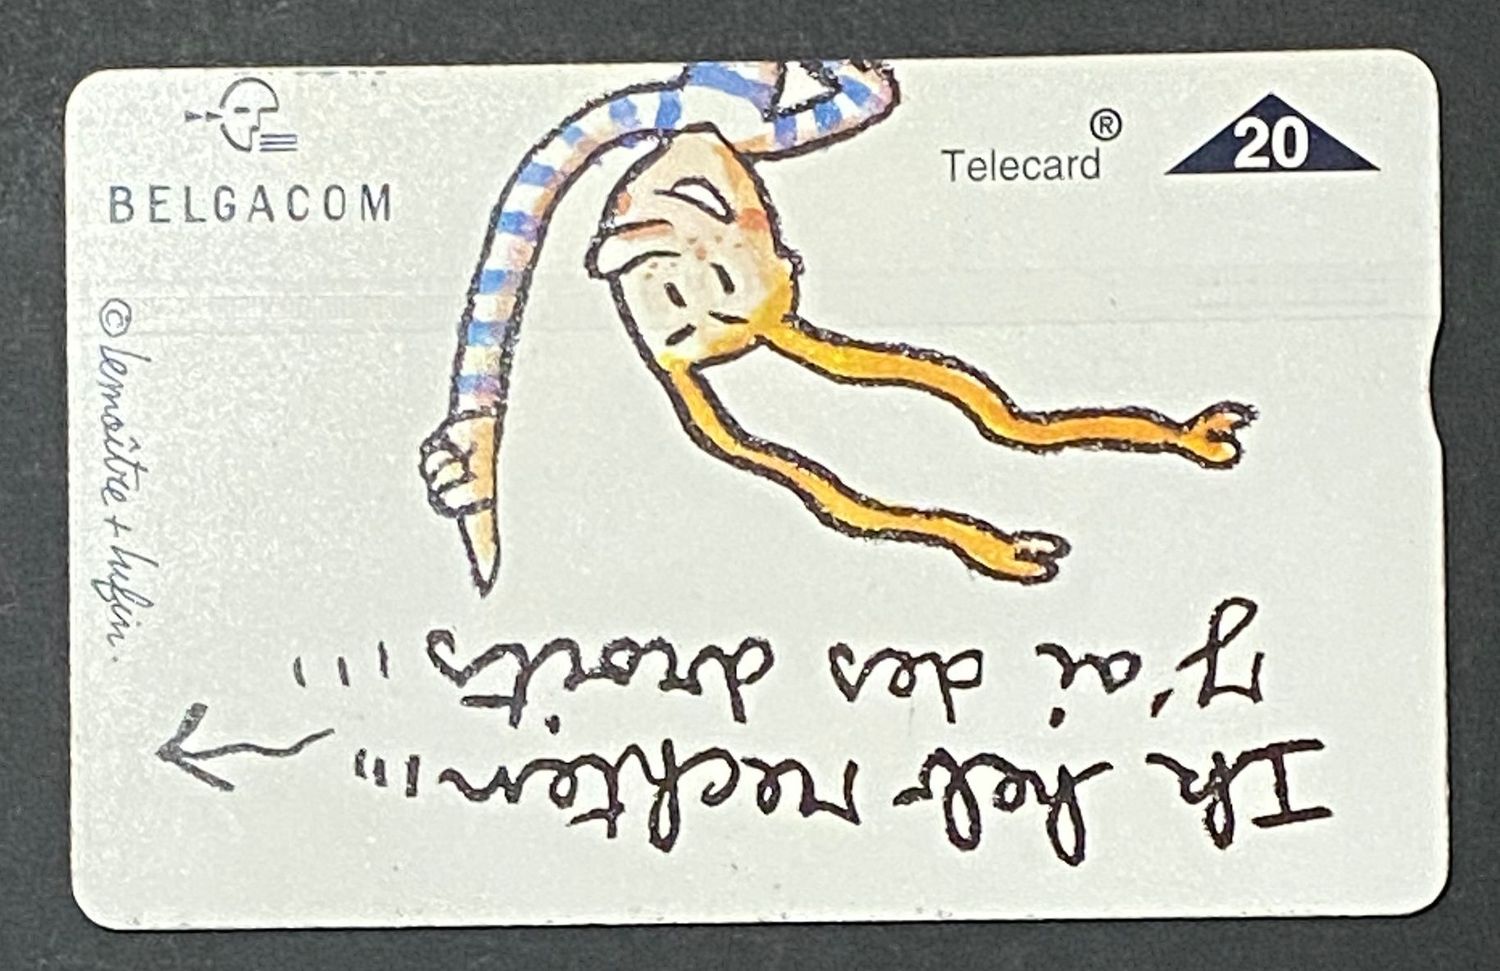 BELGACOM
Telecard®
20
© lemaître + lufin.
Ik heb rechten....
J'ai des droits....